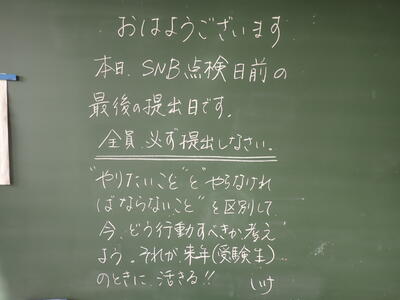 おはようございます
本日、SNB点検日前の
最後の提出日です。
全員、必ず提出しなさい。
"やりたいこと"と"やらなけれ
ばならないこと"を区別して
今、どう行動すべきか考え
よう。それが、来年(受験生)…
のときに活きる!!